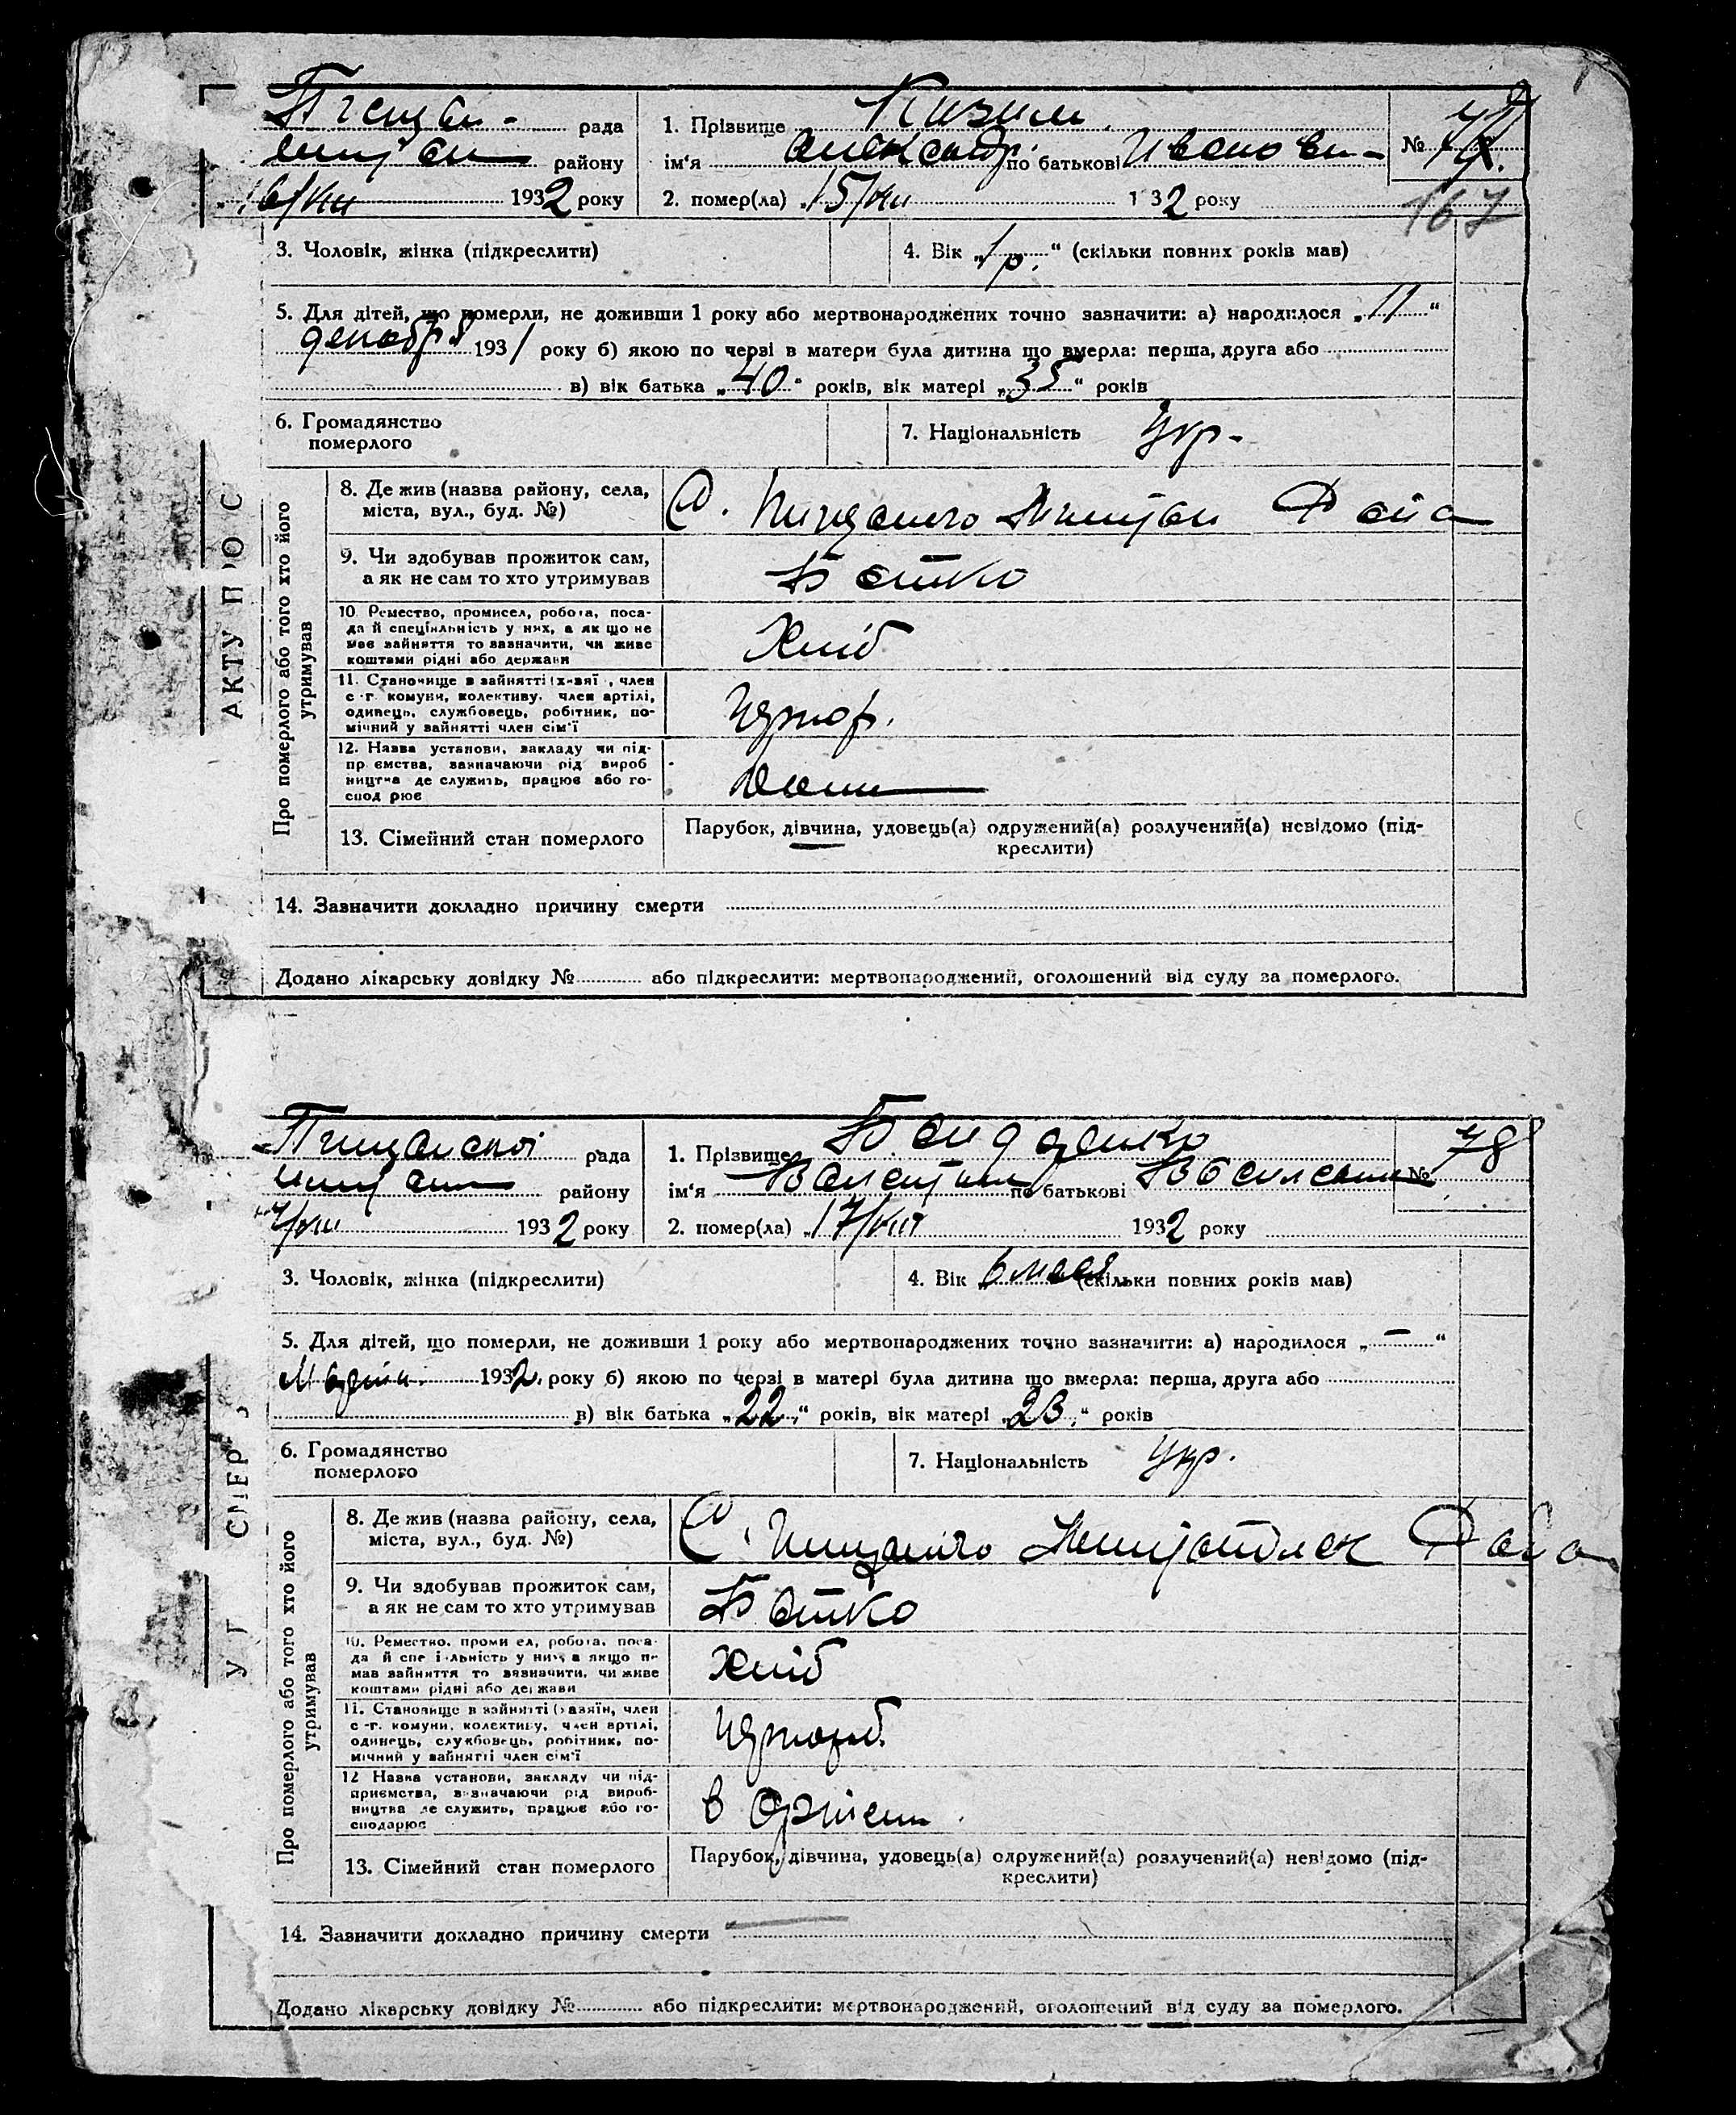 рада
району
16/VIII 1932 року
1. Прізвище Кизим
ім'я Александр. по батькові Иванови-
2. помер(ла) „15/VIII 1 32 року
№
167
3. Чоловік, жінка (підкреслити)
4. Вік „1 р.“ (скільки повних років мав)
5. Для дітей, що померли, не доживши 1 року або мертвонароджених точно зазначити: а) народилося „11“
декабря 1931 року б) якою по черзі в матери була дитина що вмерла: перша, друга або
в) вік батька „40“ років, вік матері „35“ років
6. Громадянство
померлого
7. Національність Укр.
АКТУ П О С
Про померлого або того хто його
утримував
8. Де жив (назва району, села,
міста, вул., буд. №)
С.
9. Чи здобував прожиток сам,
а як не сам то хто утримував
Батко
10. Ремество, промисел, робота, поса-
да й спеціяльність у них, а як що не
має зайняття то зазначити, чи живе
коштами рідні або держави
Хліб
11. Становище в зайнятті (х-вяї , член
с-г. комуни, колективу, член артілі,
одинець, службовець, робітник, по-
мічний у зайнятті член сім'ї
12. Назва установи, закладу чи під-
пр ємства, зазначаючи рід вироб
ництва де служить, працює або го-
спод рює
13. Сімейний стан померлого
Парубок, дівчина, удовець(а) одружений(а) розлучений(а) невідомо (під-
креслити)
14. Зазначити докладно причину смерти
Додано лікарську довідку № або підкреслити: мертвонароджений, оголошений від суду за померлого.
Пищанскої рада
району
1932 року
1. Прізвище Бондаренко
ім'я Валентин по батькові
2. помер(ла) „17/VIII 1932 року
№ 78
3. Чоловік, жінка (підкреслити)
4. Вік „6 мес. (скільки повних років мав)
5. Для дітей, що померли, не доживши 1 року або мертвонароджених точно зазначити: а) народилося „—“
Марта 1932 року б) якою по черзі в матері була дитина що вмерла: перша, друга або
в) вік батька „22“ років, вік матері „23“ років
6. Громадянство
померлого
7. Національність Укр.
У Г СМЕР
Про померлого або того хто його
утримував
8. Де жив (назва району, села,
міста, вул., буд. №)
С.
9. Чи здобував прожиток сам,
а як не сам то хто утримував
Батко
10. Ремество, проми ел, робота, поса-
да й спе і льність у них, а якщо н
мав зайняття то зазначити, чи живе
коштами рідні або держави
Хліб
11. Становище в зайнятті (хазяїн, член
с-г. комуни, колективу, член артілі,
одинець, службовець, робітник, по-
мічний у зайнятті член сім'ї
12 Назва установи, закладу чи під-
приємства, визначаючи рід вироб-
ництва де служить, працює або го-
сподарює
в Артели
13. Сімейний стан померлого
Парубок, дівчина, удовець(а) одружений(а) розлучений(а) невідомо (під-
креслити)
14. Зазначити докладно причину смерти
Додано лікарську довідку № або підкреслити: мертвонароджений, оголошений від суду за померлого.